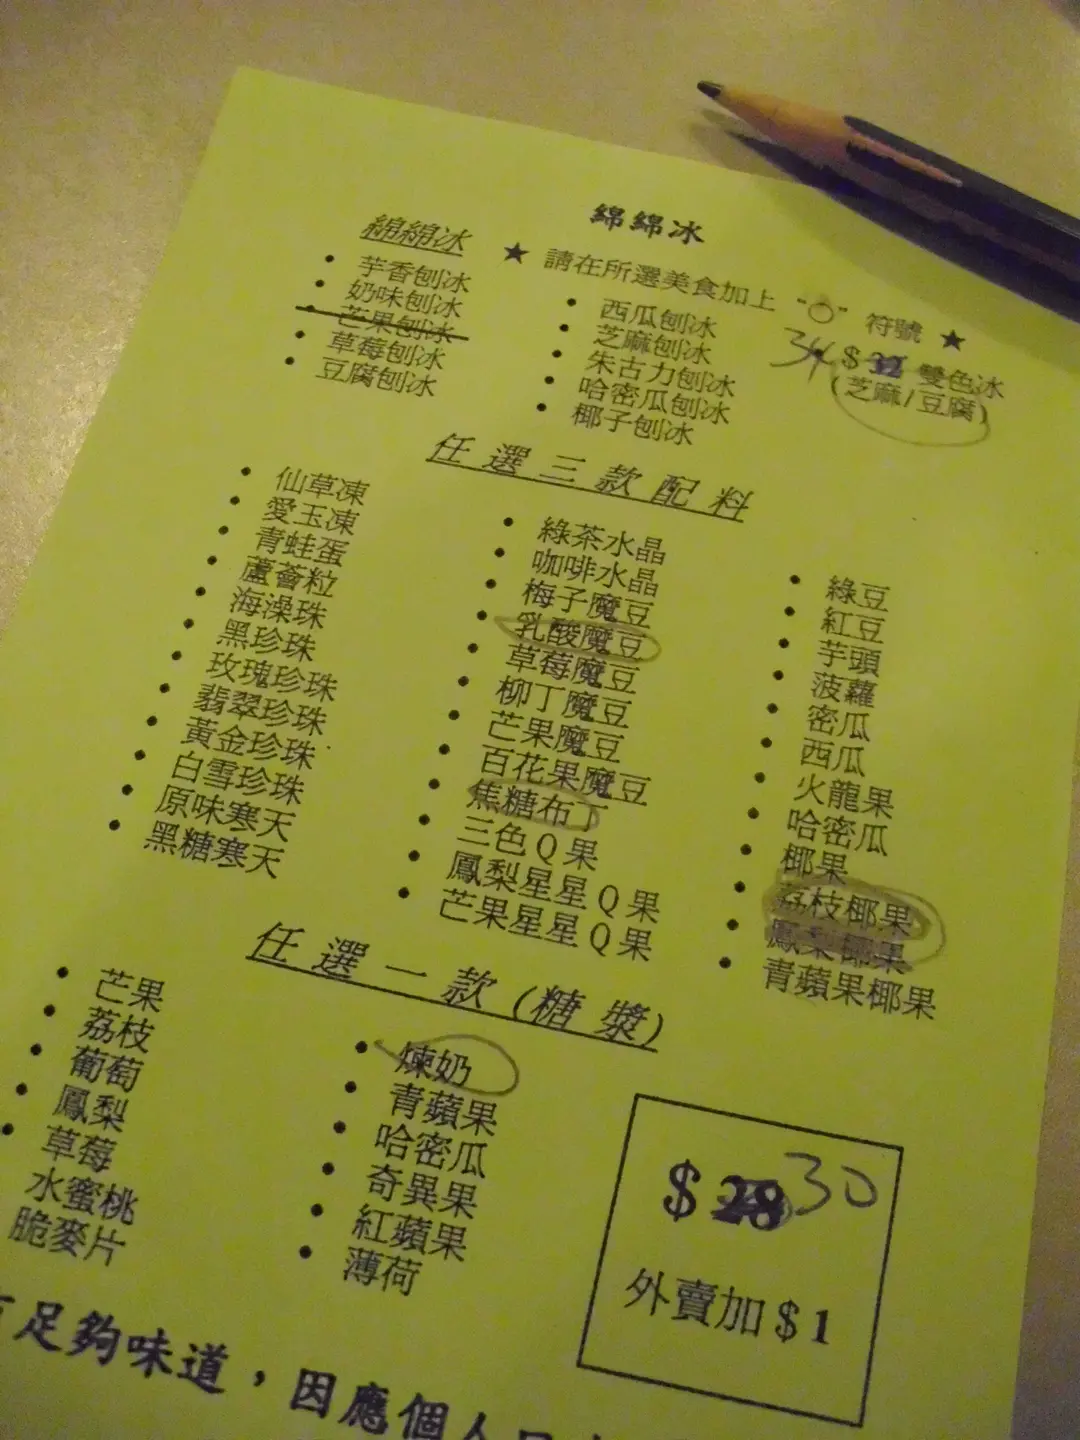 綿綿冰
★ 請在所選美食加上 "○" 符號 ★
綿綿冰
芋香刨冰
奶味刨冰
芒果刨冰
草莓刨冰
豆腐刨冰
西瓜刨冰
芝麻刨冰
朱古力刨冰
哈密瓜刨冰
椰子刨冰
34 $32 雙色冰
(芝麻/豆腐)
任選三款配料
仙草凍
愛玉凍
青蛙蛋
蘆薈粒
海澡珠
黑珍珠
玫瑰珍珠
翡翠珍珠
黃金珍珠
白雪珍珠
原味寒天
黑糖寒天
綠茶水晶
咖啡水晶
梅子魔豆
乳酸魔豆
草莓魔豆
柳丁魔豆
芒果魔豆
百花果魔豆
焦糖布丁
三色Q果
鳳梨星星Q果
芒果星星Q果
綠豆
紅豆
芋頭
菠蘿
密瓜
西瓜
火龍果
哈密瓜
椰果
荔枝椰果
鳳梨椰果
青蘋果椰果
任選一款(糖漿)
芒果
荔枝
葡萄
鳳梨
草莓
水蜜桃
脆麥片
煉奶
青蘋果
哈密瓜
奇異果
紅蘋果
薄荷
$28 30
外賣加$1
足夠味道，因應個人